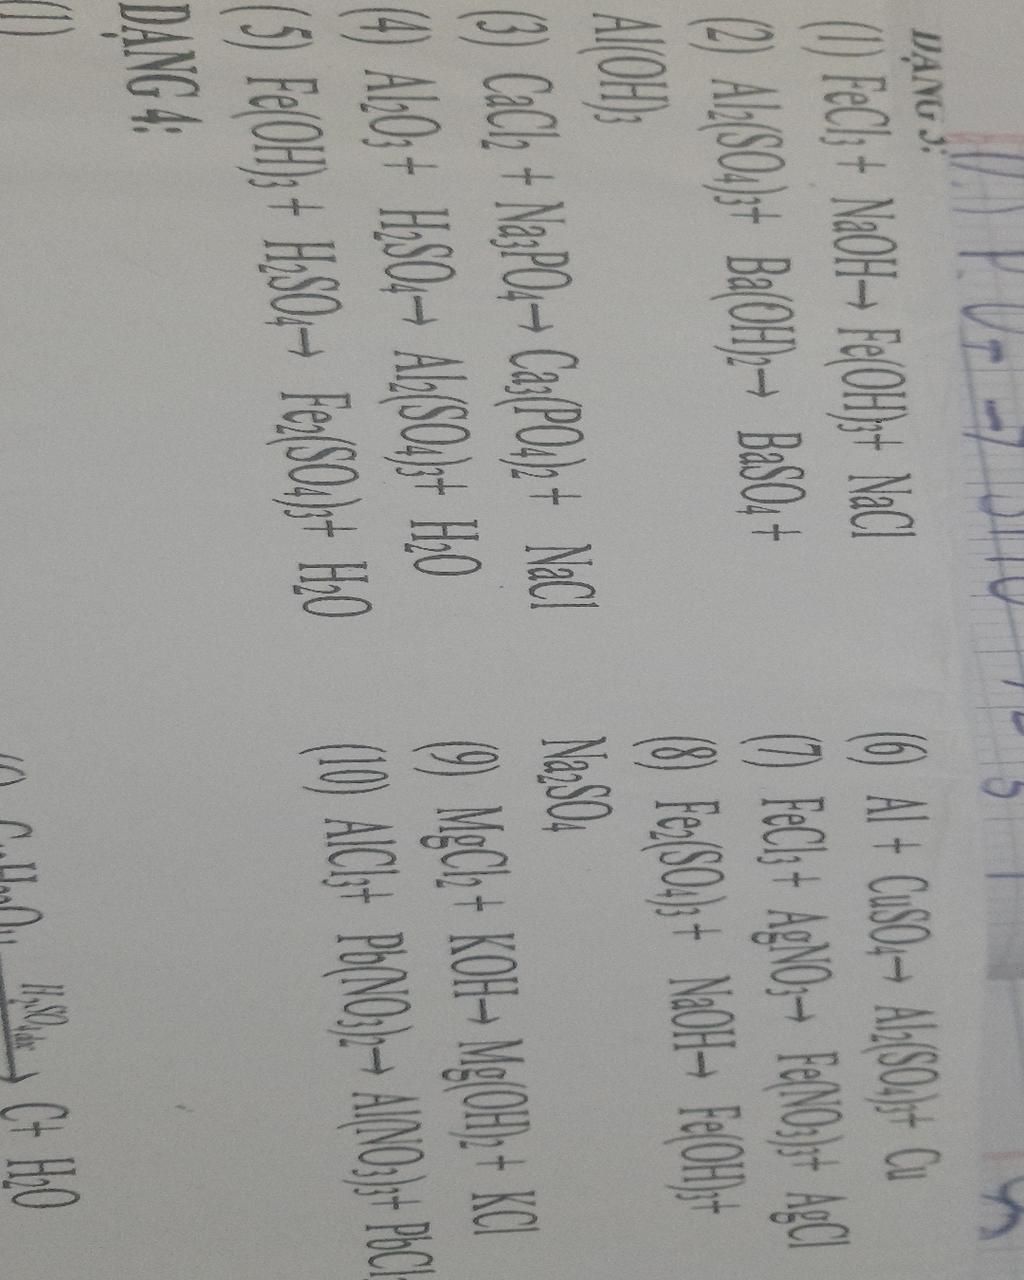 DẠNG 3:
(1) FeCl₃ + NaOH → Fe(OH)₃ + NaCl
(2) Al₂(SO₄)₃ + Ba(OH)₂ → BaSO₄ +
Al(OH)₃
(3) CaCl₂ + Na₃PO₄ → Ca₃(PO₄)₂ + NaCl
(4) Al₂O₃ + H₂SO₄ → Al₂(SO₄)₃ + H₂O
(5) Fe(OH)₃ + H₂SO₄ → Fe₂(SO₄)₃ + H₂O
(6) Al + CuSO₄ → Al₂(SO₄)₃ + Cu
(7) FeCl₃ + AgNO₃ → Fe(NO₃)₃ + AgCl
(8) Fe₂(SO₄)₃ + NaOH → Fe(OH)₃ +
Na₂SO₄
(9) MgCl₂ + KOH → Mg(OH)₂ + KCl
(10) AlCl₃ + Pb(NO₃)₂ → Al(NO₃)₃ + PbCl₂
DẠNG 4:
(1)
C + H₂O